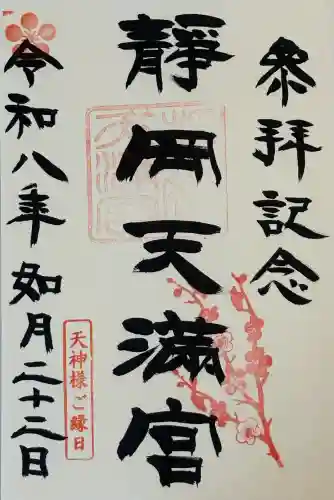 參拝記念
靜岡天滿宮
令和八年如月二十二日
天神様ご縁日